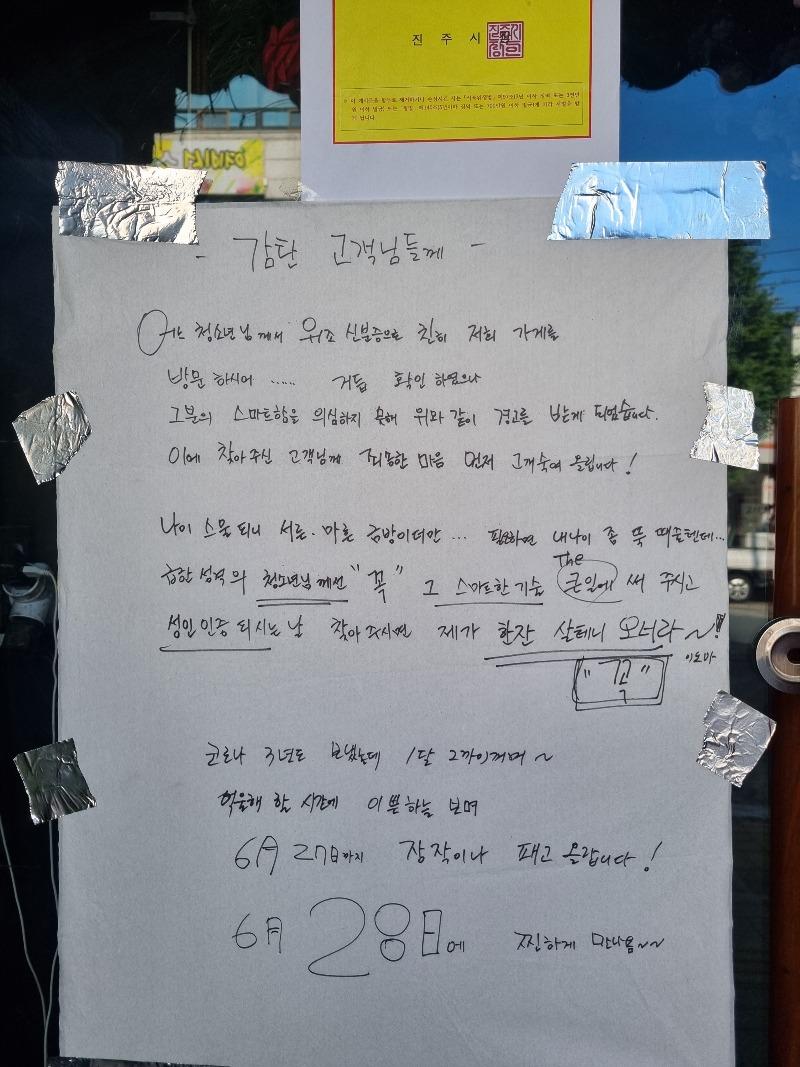 진 주 시
- 감탄 고객님들께 -
어느 청소년님께서 위조 신분증으로 친히 저희 가게를
방문 하시어 ..... 거듭 확인 하였으나
그분의 스마트함을 의심하지 못해 위와 같이 경고를 받게 되었습니다.
이에 찾아주신 고객님께 죄송한 마음 먼저 고개숙여 올립니다!
나이 스물 되니 서른·마흔 금방이더만... 필요하면 내나이 좀 뚝 떼줄텐데...
급한 성격의 청소년님께선 "꼭" 그 스마트한 기술 The 큰일에 써 주시고
성인인증 되시는 날 찾아주시면 제가 한잔 살테니 오너라~!
"꼭"
코로나 3년도 보냈는데 1달 2까이꺼며~
억울해 할 시간에 이쁜하늘 보며
6月 27日까지 장작이나 패고 올랍니다!
6月 28日에 찐하게 만나욤~~